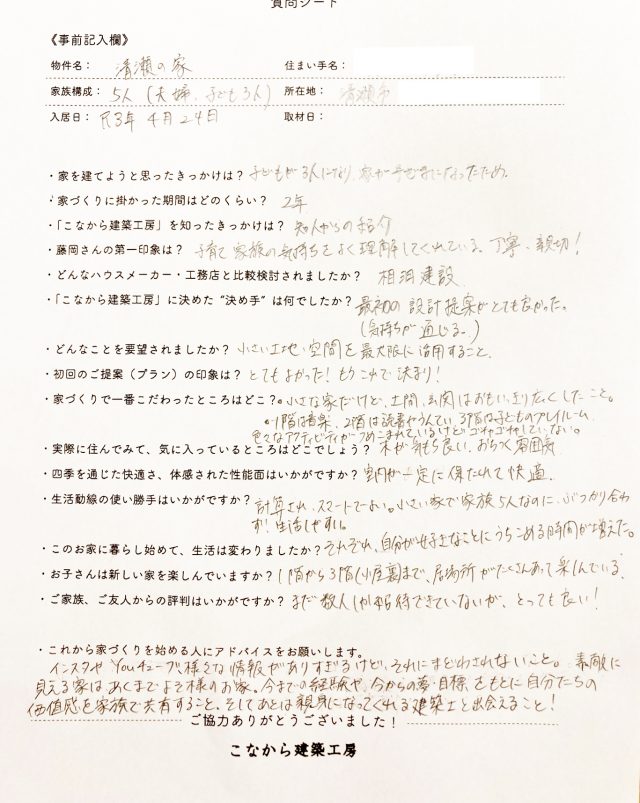 質問シート
《事前記入欄》
物件名： 清瀬の家 住まい手名：
家族構成： 5人（夫婦、子ども3人） 所在地： 清瀬市
入居日： R3年 4月24日 取材日：
・家を建てようと思ったきっかけは？ 子どもが3人になり、家が手ぜまになったため。
・家づくりに掛かった期間はどのくらい？ 2年
・「こなから建築工房」を知ったきっかけは？ 知人からの紹介
・藤岡さんの第一印象は？ 子育て家族の気持ちをよく理解してくれている。丁寧、親切！
・どんなハウスメーカー・工務店と比較検討されましたか？ 相羽建設
・「こなから建築工房」に決めた“決め手”は何でしたか？ 最初の設計提案がとても良かった。
（気持ちが通じる。）
・どんなことを要望されましたか？ 小さい土地・空間を最大限に活用すること。
・初回のご提案（プラン）の印象は？ とてもよかった！もうこれで決まり！
・家づくりで一番こだわったところはどこ？ 小さな家だけど、土間、玄関はおもいっきり広くしたこと。
1階は音楽、2階は読書やうんてい、3階は子どものプレイルーム。
色々なアクティビティがつめこまれているけどゴチャゴチャしていない。
・実際に住んでみて、気に入っているところはどこでしょう？ 木が気持ち良い、おちつく雰囲気
・四季を通じた快適さ、体感された性能面はいかがですか？ 室内が一定に保たれて快適。
・生活動線の使い勝手はいかがですか？ 計算され、スマートでよい。小さい家で家族5人なのに、ぶつかり合わ
ず！生活しやすい。
・このお家に暮らし始めて、生活は変わりましたか？ それぞれ、自分が好きなことにうちこめる時間が増えた。
・お子さんは新しい家を楽しんでいますか？ 1階から3階（小屋裏）まで、居場所がたくさんあって楽しんでいる。
・ご家族、ご友人からの評判はいかがですか？ まだ数人しか招待できていないが、とっても良い！
・これから家づくりを始める人にアドバイスをお願いします。
インスタやYouチューブ、様々な情報がありすぎるけど、それにまどわされないこと。素敵に
見える家はあくまでよそ様のお家。今までの経験や、今からの夢・目標をもとに自分たちの
価値感を家族で共有すること。そしてあとは親身になってくれる建築士と出会えること！
ご協力ありがとうございました！
こなから建築工房